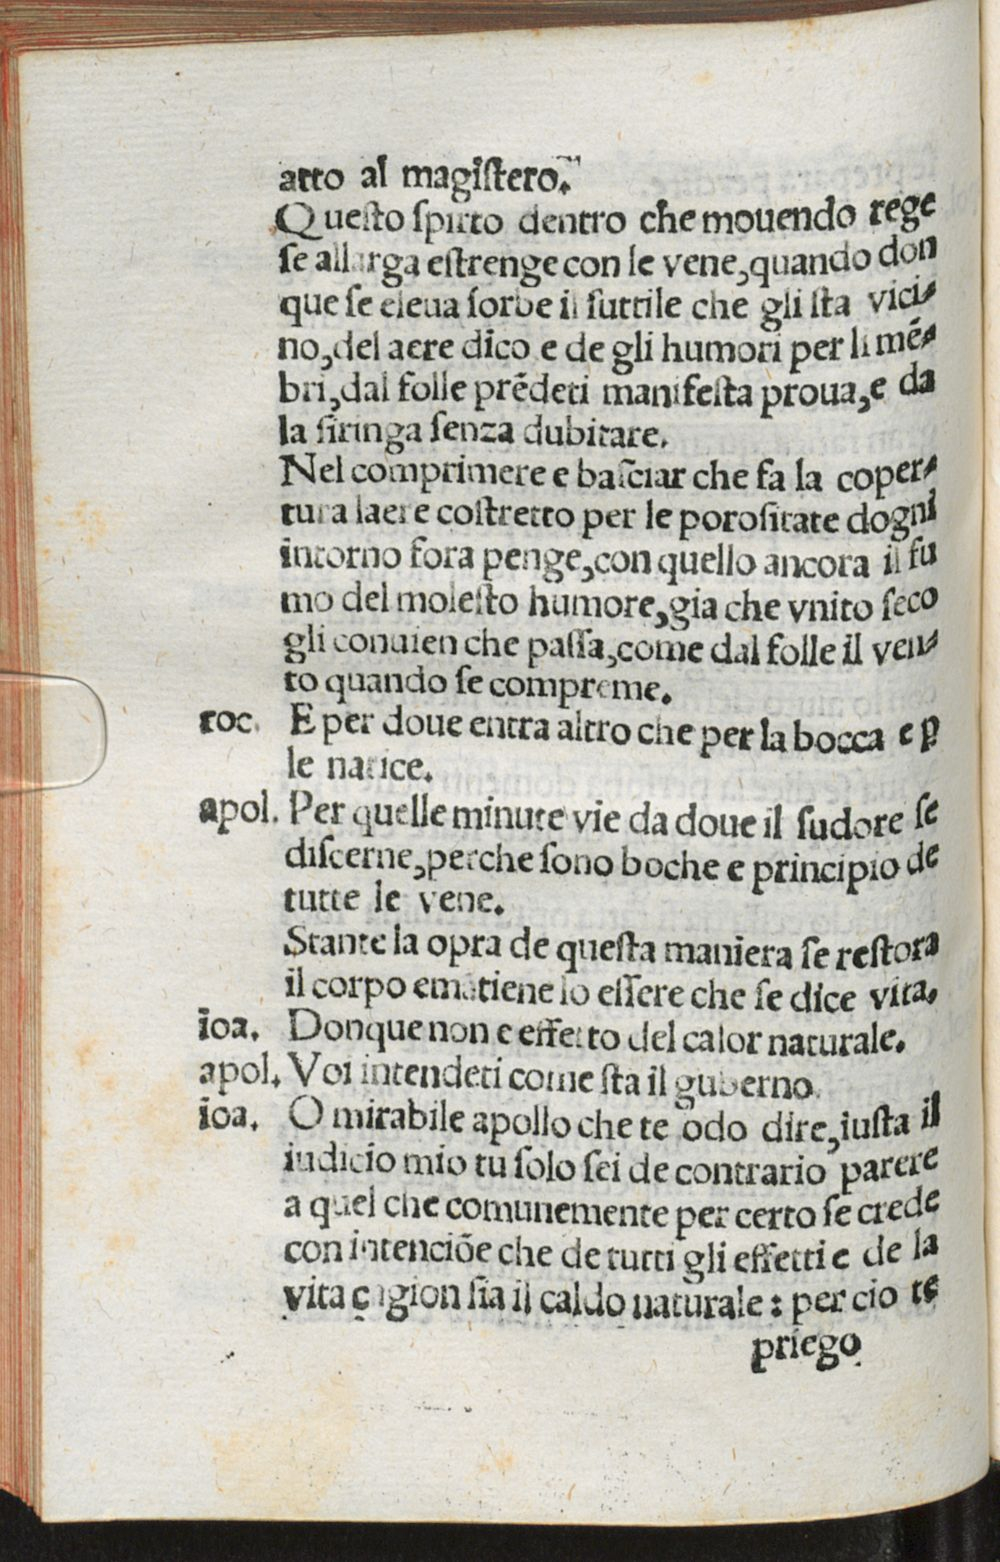 atto al magistero.
Questo spirto dentro che mouendo rege
se allarga estrenge con le vene,quando don
que se eleua sorbe il suttile che gli sta vici-
no,del aere dico e de gli humori per li mē-
bri,dal folle prēdeti manifesta proua,e da
la siringa senza dubitare.
Nel comprimere e basciar che fa la coper-
tura laere costretto per le porositate dogni
intorno fora penge,con quello ancora il fu
mo del molesto humore,gia che vnito seco
gli conuien che passa,come dal folle il ven-
to quando se compreme.
roc. E per doue entra altro che per la bocca e ꝑ
le narice.
apol. Per quelle minute vie da doue il sudore se
discerne,perche sono boche e principio de
tutte le vene.
Stante la opra de questa maniera se restora
il corpo emātiene lo essere che se dice vita.
ioa. Donque non e effetto del calor naturale.
apol. Voi intendeti come sta il guberno.
ioa. O mirabile apollo che te odo dire,iusta il
iudicio mio tu solo sei de contrario parere
a quel che comunemente per certo se crede
con intenciōe che de tutti gli effetti e de la
vita cagion sia il caldo naturale: per cio te
priego